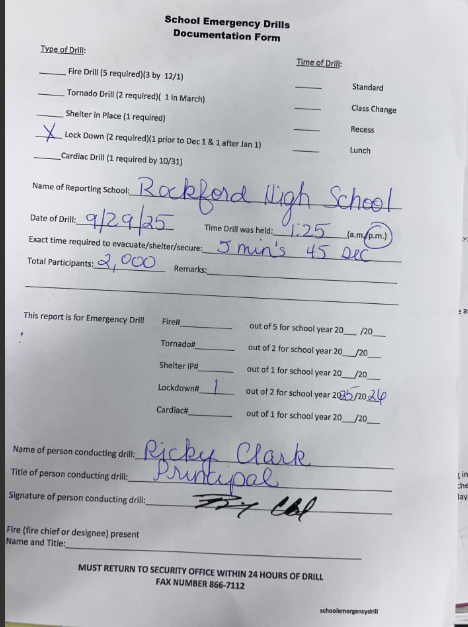 School Emergency Drills
Documentation Form
Type of Drill:
Time of Drill:
_____ Fire Drill (5 required)(3 by 12/1)
_____ Standard
_____ Tornado Drill (2 required)( 1 in March)
_____ Class Change
_____ Shelter in Place (1 required)
_____ Recess
X Lock Down (2 required)(1 prior to Dec 1 & 1 after Jan 1)
_____ Lunch
_____ Cardiac Drill (1 required by 10/31)
Name of Reporting School: Rockford High School
Date of Drill: 9/29/25 Time Drill was held: 1:25 (a.m./p.m.)
Exact time required to evacuate/shelter/secure: 5 min's 45 sec
Total Participants: 2,000 Remarks:
This report is for Emergency Drill Fire#______ out of 5 for school year 20__/20__
Tornado#______ out of 2 for school year 20__/20__
Shelter IP#______ out of 1 for school year 20__/20__
Lockdown# 1 out of 2 for school year 2025/2026
Cardiac#______ out of 1 for school year 20__/20__
Name of person conducting drill: Ricky Clark
Title of person conducting drill: Principal
Signature of person conducting drill:
Fire (fire chief or designee) present
Name and Title:
MUST RETURN TO SECURITY OFFICE WITHIN 24 HOURS OF DRILL
FAX NUMBER 866-7112
schoolemergencydrill